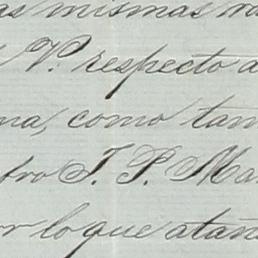 as mismas
V. respecto a
na, como tam
tro T. P. Ma
or lo que atañ